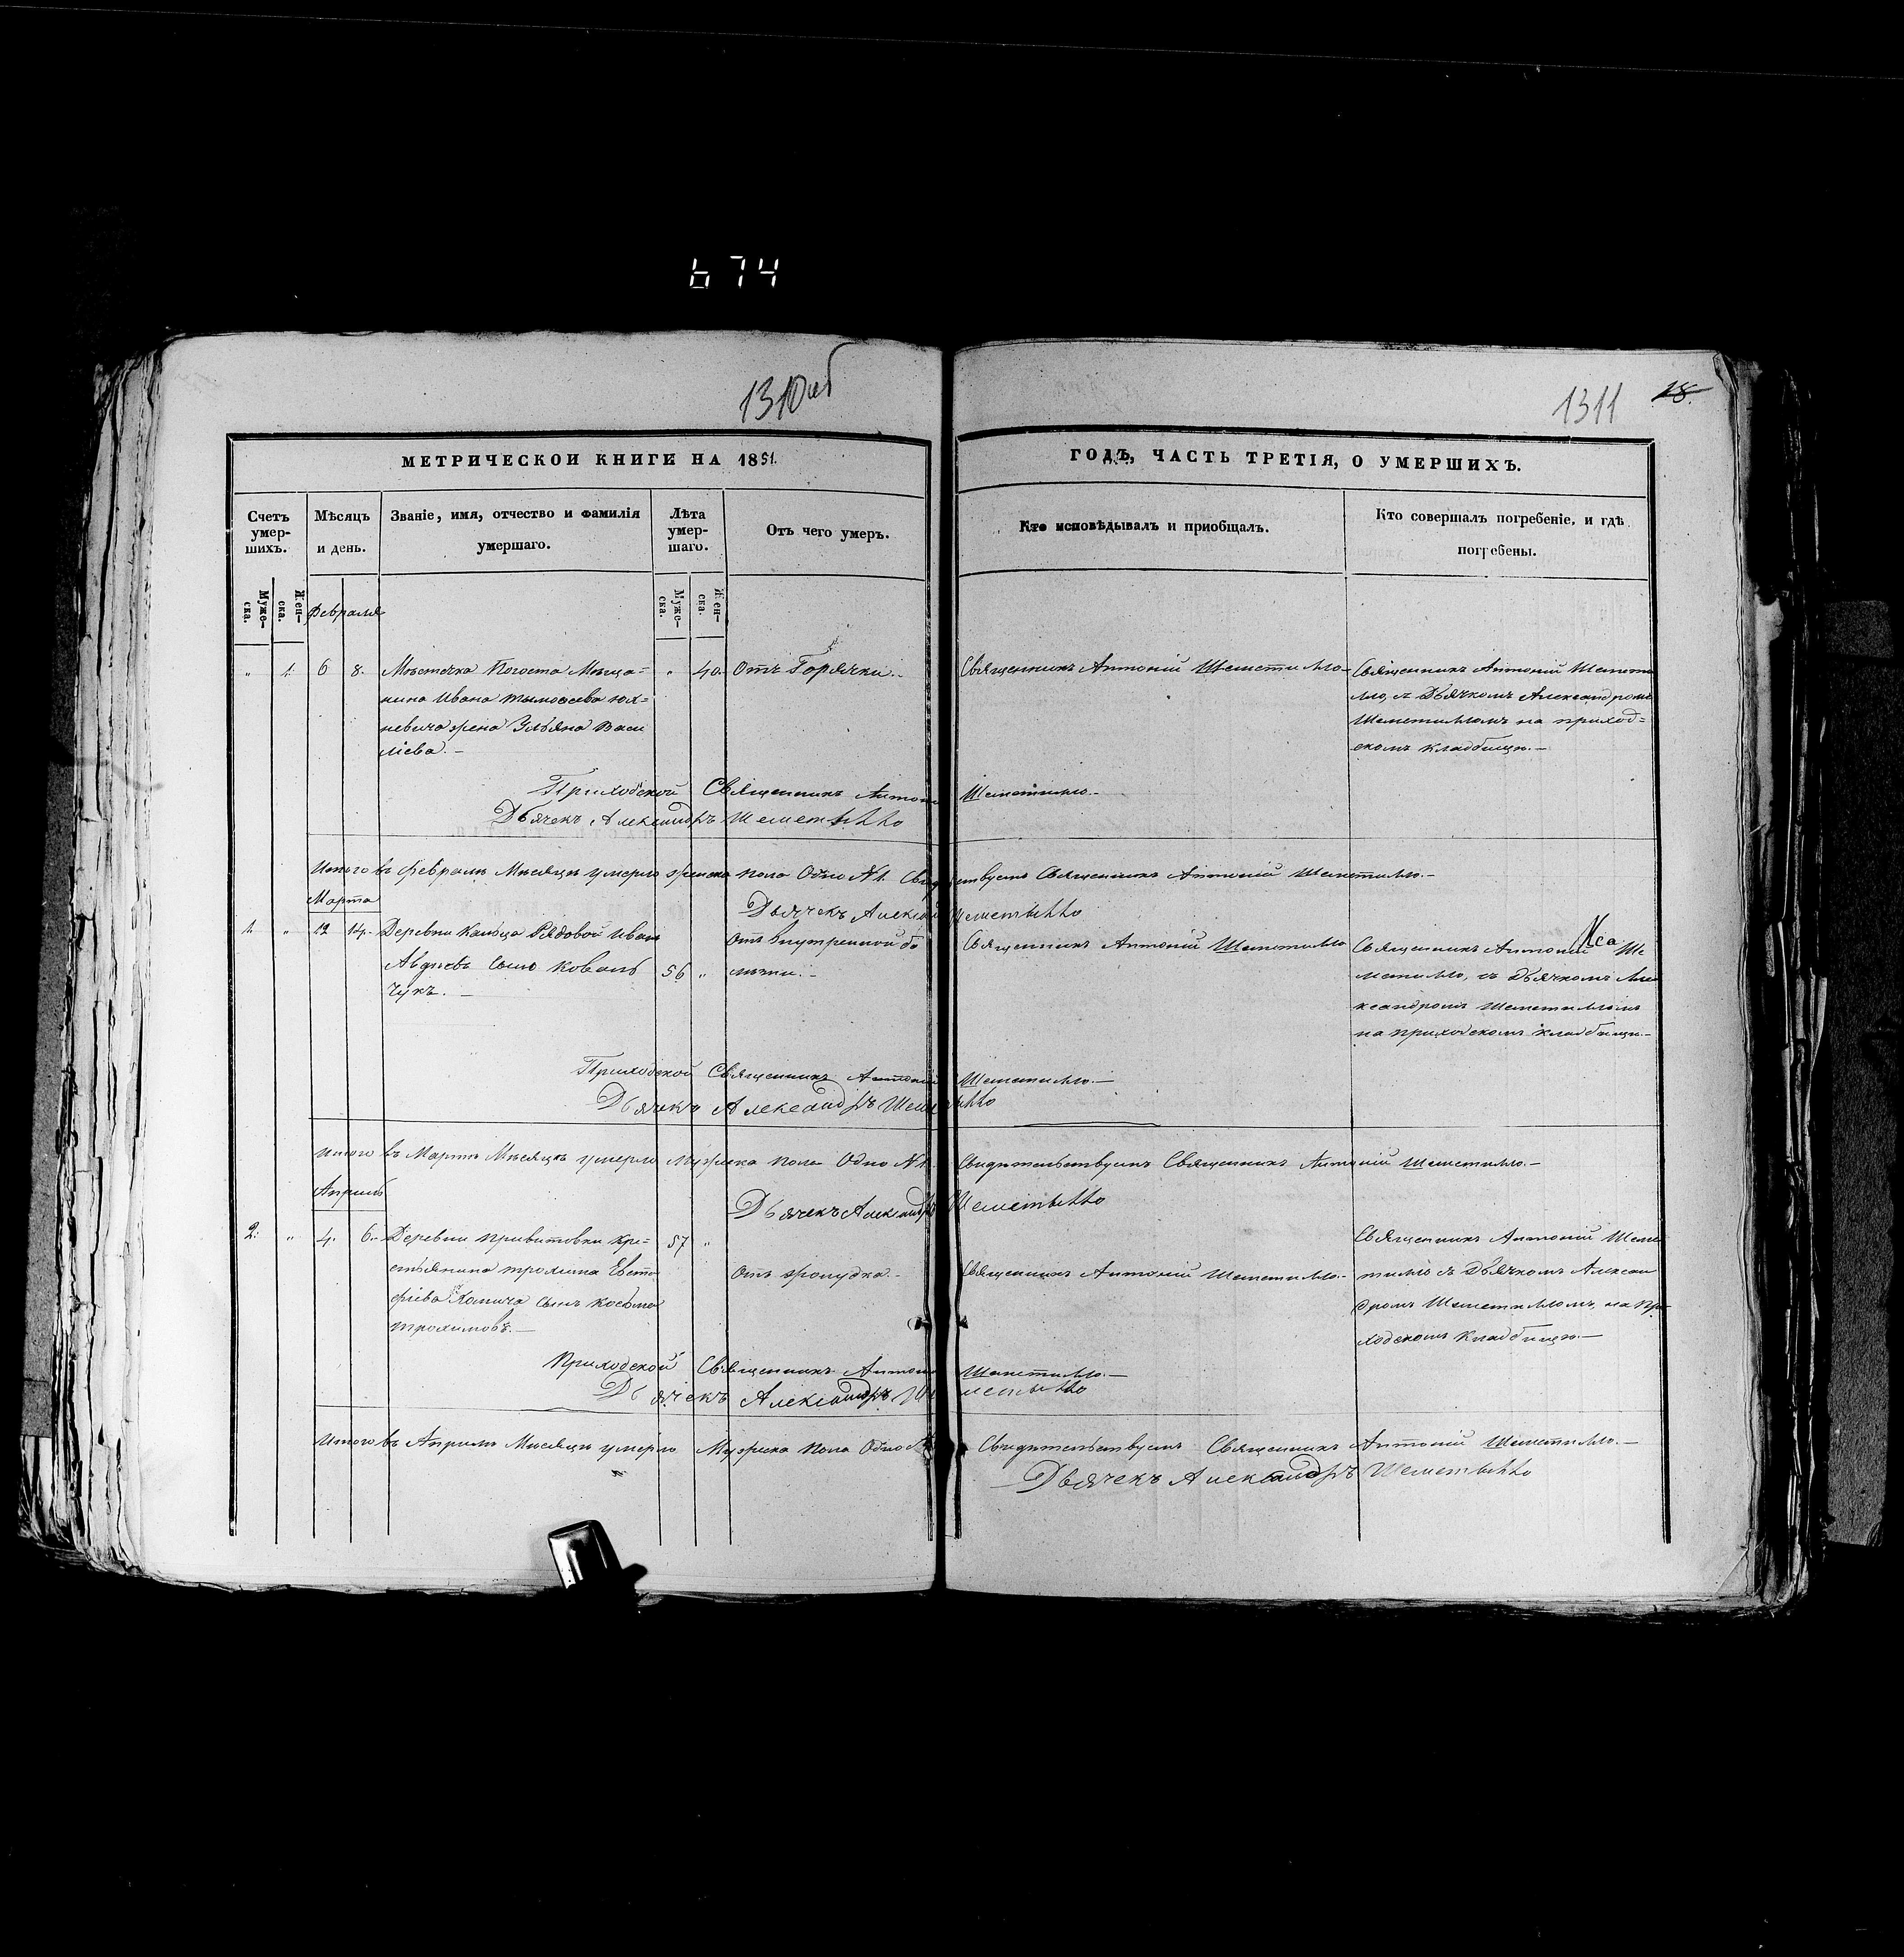 674
1310об
1311 18.
МЕТРИЧЕСКОЙ КНИГИ НА 1851.
ГОДЪ, ЧАСТЬ ТРЕТІЯ, О УМЕРШИХЪ.
Счетъ умер-шихъ.
Мѣсяцъ и день.
Званіе, имя, отчество и фамилія умершаго.
Лѣта умер-шаго.
Отъ чего умеръ.
Кто исповѣдывалъ и приобщалъ.
Кто совершалъ погребеніе, и гдѣ погребены.
Муже-ска.
Жен-ска.
Муже-ска.
Жен-ска.
Февраля
„ 1. 6 8. Мѣстечка Погоста Мѣща=
нина Ивана
невича жена Ульяна Васи
лїева. —
„ 40. Отъ Горячки. –
Священникъ Антоній Шеметилло –
Священникъ Антоній Шемети
лло, съ Дьячкомъ Александромъ
Шеметилломъ на приход=
скомъ кладбищѣ. —
Приходской Священникъ Антоній Шеметилло. –
Дьячекъ Александръ Шеметылло
Итого въ Февралѣ Мѣсяцѣ умерло женска пола Одно №1. Свидѣтельствуетъ Священникъ Антоній Шеметилло. –
Дьячекъ Александръ Шеметылло
Марта
1. „ 12 14. Деревни Рядовой Иванъ
Авдѣевъ сынъ Коваль
чукъ. —
56 „
Отъ внутренной бо
лѣзни. –
Священникъ Антоній Шеметилло
Священникъ Антоній Ше
метилло, съ Дьячкомъ Але
ксандромъ Шеметилломъ
на приходскомъ кладбищѣ. –
Приходской Священникъ Антоній Шеметилло. —
Дьячекъ Александръ Шеметылло
Итого въ Мартѣ Мѣсяцѣ умерло Мужска пола Одно №1. Свидѣтельствуетъ Священникъ Антоній Шеметилло. –
Дьячекъ Александръ Шеметылло
Апрѣль
2. „ 4. 6. Деревни Кре=
стьянина Трохима Евста
фіева сынъ Косьма
Трохимовъ. —
57 „
Отъ простуды. –
Священникъ Антоній Шеметилло. –
Священникъ Антоній Шеме
тилло съ Дьячкомъ Алексан
дромъ Шеметилломъ, на при
ходскомъ кладбищѣ. —
Приходской Священникъ Антоній Шеметилло. —
Дьячекъ Александръ Шеметылло
Итого въ Апрѣлѣ Мѣсяцѣ умерло Мужска пола Одно Свидѣтельствуетъ Священникъ Антоній Шеметилло. —
Дьячекъ Александръ Шеметылло